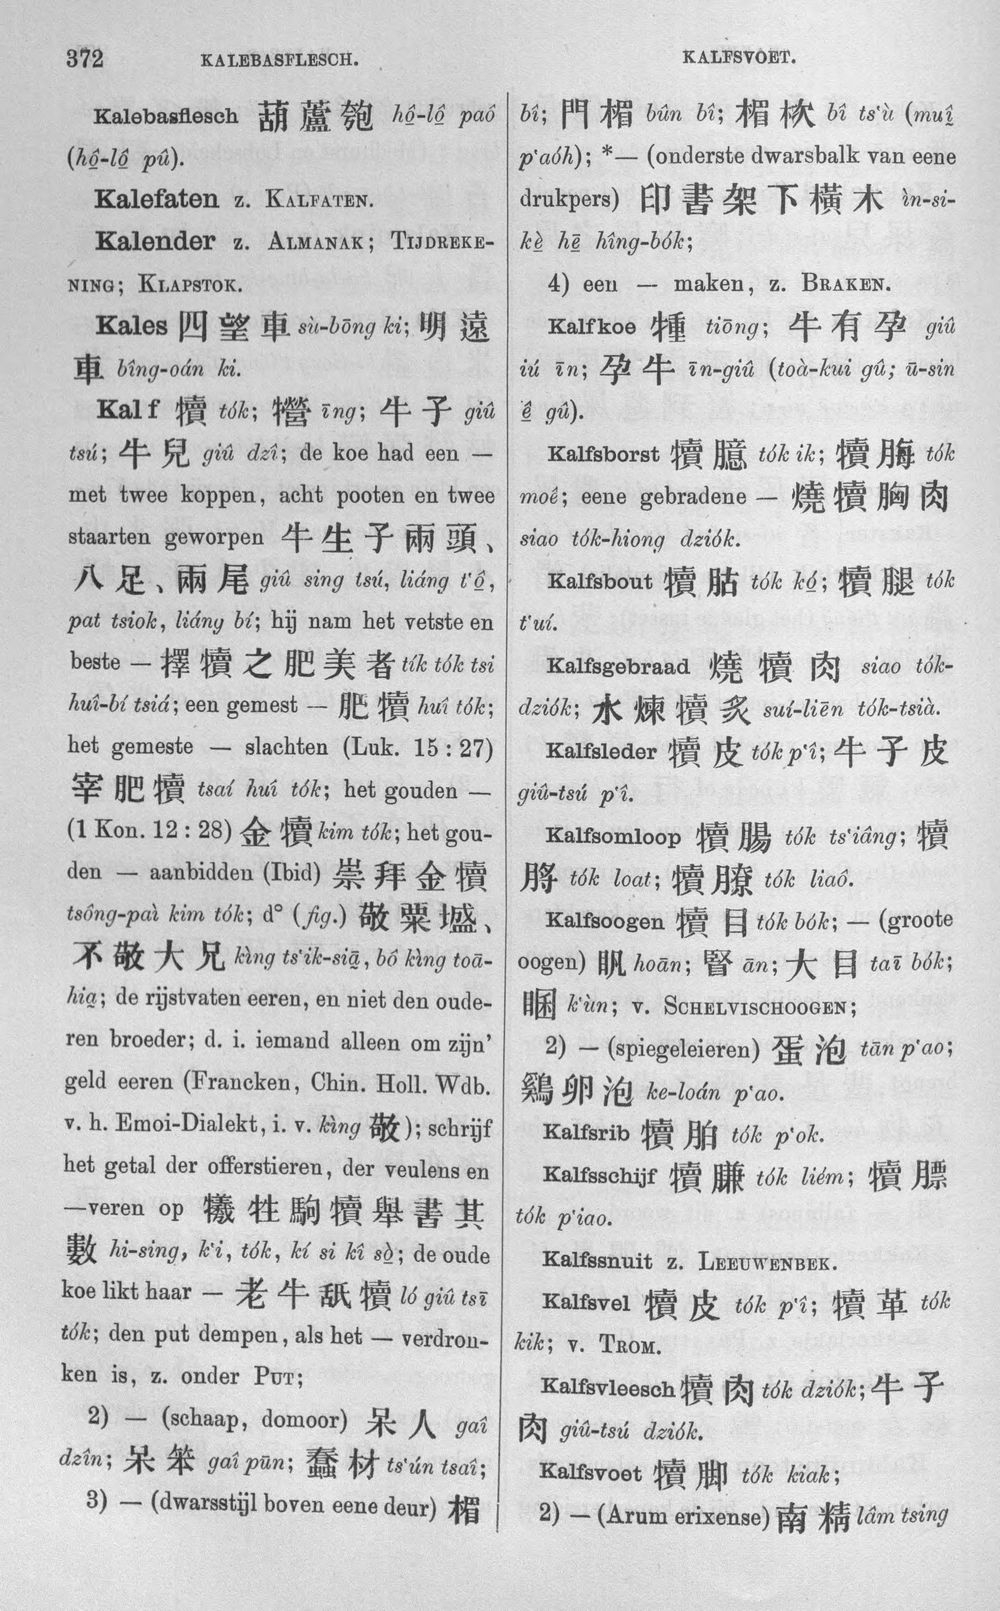 372
KALEBASFLESCH.
KALFSVOET.
Kalebasflesch 葫蘆匏 hô̤-lô̤ paó
(hô̤-lô̤ pû).
Kalefaten z. KALFATEN.
Kalender z. ALMANAK; TIJDREKE-
NING; KLAPSTOK.
Kales 四望車 sù-bōng ki; 明遠
車 bîng-oán ki.
Kalf 犢 tók; īng; 牛子 giû
tsú; 牛兒 giû dzî; de koe had een —
met twee koppen, acht pooten en twee
staarten geworpen 牛生子兩頭、
八足、兩尾 giû sing tsú, liáng t'ô̤,
pat tsiok, liáng bí; hij nam het vetste en
beste — 擇犢之肥美者 tík tók tsi
huî-bí tsiá; een gemest — 肥犢 huî tók;
het gemeste — slachten (Luk. 15 : 27)
宰肥犢 tsaí huî tók; het gouden —
(1 Kon. 12 : 28) 金犢 kim tók; het gou-
den — aanbidden (Ibid) 崇拜金犢
tsông-paì kim tók; d° (fig.) 敬粟㙷、
不敬大兄 kìng ts'ik-siā, bô kìng toā-
hia; de rijstvaten eeren, en niet den oude-
ren broeder; d. i. iemand alleen om zijn'
geld eeren (Francken, Chin. Holl. Wdb.
v. h. Emoi-Dialekt, i. v. kìng 敬); schrijf
het getal der offerstieren, der veulens en
—veren op 犧牲駒犢舉書其
數 hi-sing, k'i, tók, kí si kî sò̤; de oude
koe likt haar — 老牛舐犢 ló giû tsī
tók; den put dempen, als het — verdron-
ken is, z. onder PUT;
2) — (schaap, domoor) 呆人 gaî
dzîn; 呆笨 gaî pūn; 蠢材 ts'ún tsaî;
3) — (dwarsstijl boven eene deur) 楣
bî; 門楣 bûn bî; 楣 bî ts'ù (muî
p'aóh); *— (onderste dwarsbalk van eene
drukpers) 印書架下橫木 ìn-si-
kè̤ hē̤ hîng-bók;
4) een — maken, z. BRAKEN.
Kalfkoe 㹿 tiōng; 牛有孕 giû
iú īn; 孕牛 īn-giû (toà-kui gû; ū-sin
ê̤ gû).
Kalfsborst 犢臆 tók ik; 犢脢 tók
moê; eene gebradene — 燒犢胸肉
siao tók-hiong dziók.
Kalfsbout 犢𦙶 tók kó̤; 犢腿 tók
t'uí.
Kalfsgebraad 燒犢肉 siao tók-
dziók; 水煉犢炙 suí-liēn tók-tsià.
Kalfsleder 犢皮 tók p'î; 牛子皮
giû-tsú p'î.
Kalfsomloop 犢腸 tók ts'iâng; 犢
脟 tók loat; 犢膫 tók liaô.
Kalfsoogen 犢目 tók bók; — (groote
oogen) hoān; ān; 大目 taī bók;
睏 k'ùn; v. SCHELVISCHOOGEN;
2) — (spiegeleieren) 蛋泡 tān p'ao;
鷄卵泡 ke-loán p'ao.
Kalfsrib 犢胉 tók p'ok.
Kalfsschijf 犢膁 tók liém; 犢膘
tók p'iao.
Kalfssnuit z. LEEUWENBEK.
Kalfsvel 犢皮 tók p'î; 犢革 tók
kik; v. TROM.
Kalfsvleesch 犢肉 tók dziók; 牛子
肉 giû-tsú dziók.
Kalfsvoet 犢脚 tók kiak;
2) — (Arum erixense) 南精 lâm tsing